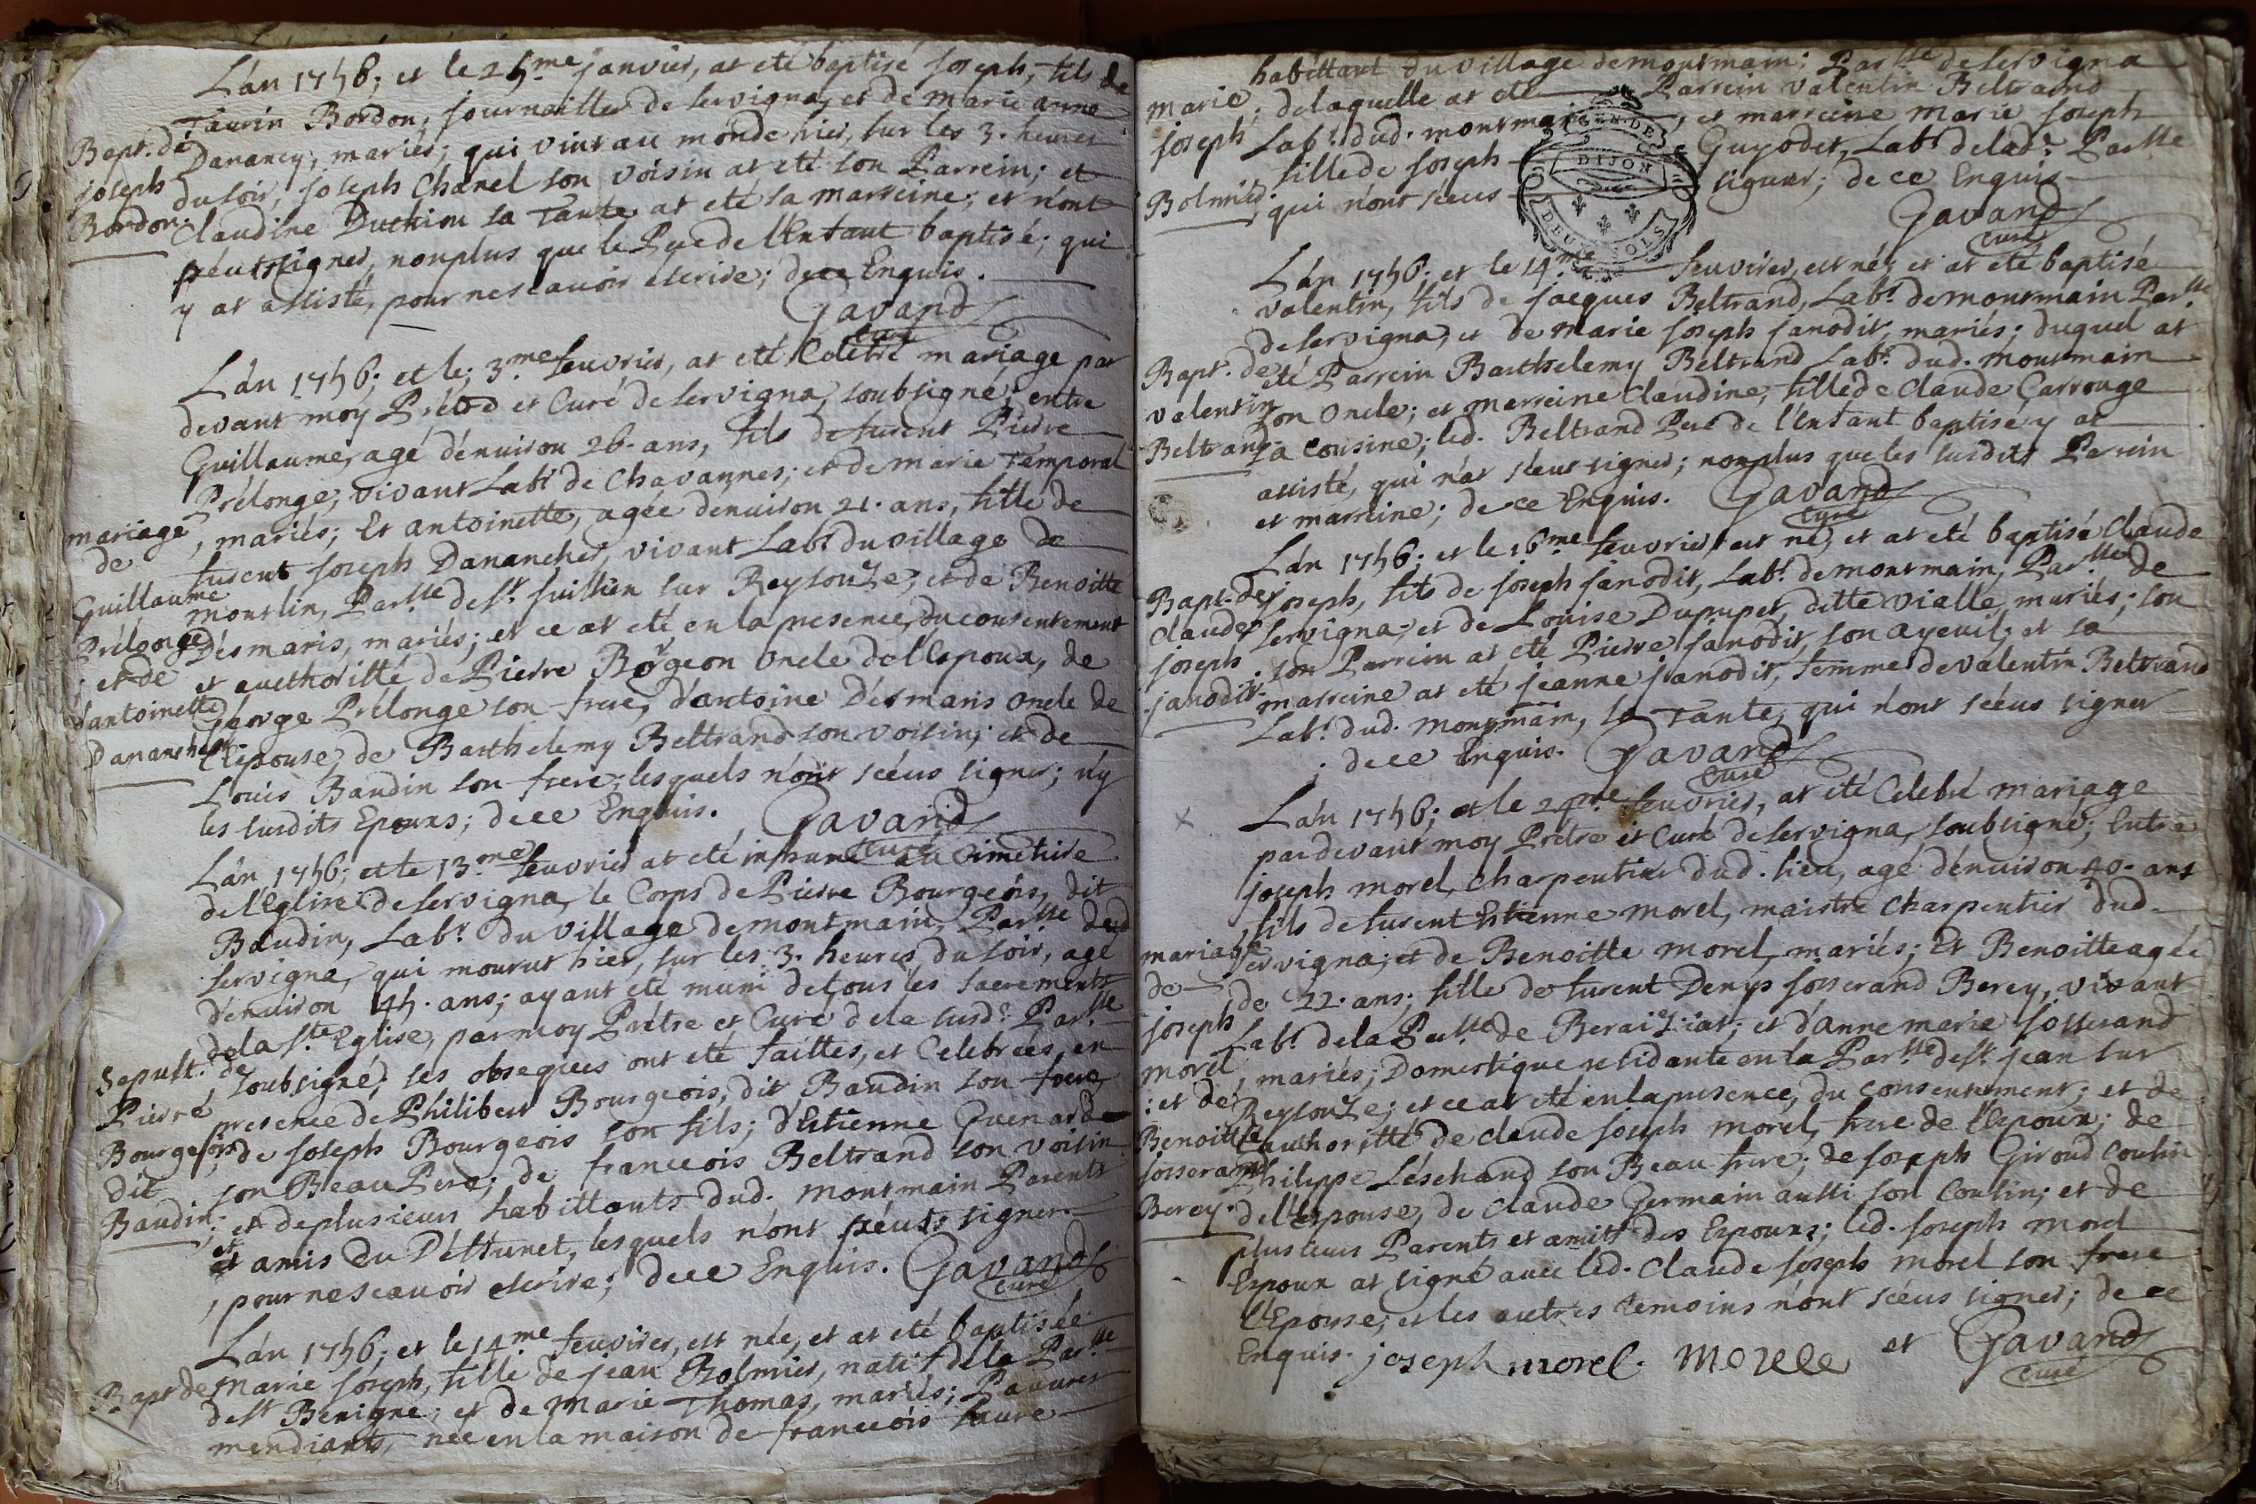 L'án 1756; et le 25.me janvier, at eté baptisé joseph, fils de
Taurin Bordon, journailler de servigna, et de marie anne
Bapt. de
joseph
Bordon.
Danancy, mariés; qui vint au monde hier, sur les 3. heures
du soir, joseph Chanel son voisin at eté son Parrein; et
Claudine Duthion sa Tante at eté sa marreine; et n'ont
péuts signer, nonplus que le Pere de l'Enfant baptisé; qui
y at assisté, pour ne scavoir escrire; de ce Enquis.
Gavand
curé
L'án 1756; et le; 3.me feuvrier, at eté Celebré mariage par
devant moy Prétre et Curé de servigna, soubsigné; entre
Guillaume, agé d'enuiron 26. ans, fils de furent Pierre
Prélonge, vivant Labr. de Chavannes; et de marie Temporal
mariage
de
Guillaume
Prélonge
; et de
d'antoinette
Dananches.
, mariés; Et antoinette, agée denuiron 21. ans, fille de
furent joseph Dananches, vivant Labr. du village de
montlin, Par.sse de St. juillien sur Reysouze; et de Benoitte
Désmaris, mariés; et ce at eté en la presence, du consentement
et aucthoritté de Pierre Borgeon oncle de l'Espoux, de
Géorge Prélonge son frere, d'antoine Désmaris oncle de
l'Epouse, de Barthelemy Beltrand son voisin; et de
Louis Baudin son frere; lesquels n'ont scéus signer; n'y
les susdits Epouxs; de ce Enquis.
Gavand
curé
L'án 1756; et le 13.me feuvrier at eté inhumé au Cimetiere
de l'église de servigna, le Corps de Pierre Bourgeois, dit
Baudin, Labr. du village de montmain, Par.sse dud.
servigna, qui mourut hier, sur les 3. heures du soir, agé
d'enuiron 45. ans; ayant eté muni de tous les sacrements
de la Ste. Eglise, par moy Prétre et Curé de la susd.e Par.sse
Sepult. de
Pierre
Bourgeois
dit
Baudin.
, soubsigné; ses obseques ont eté faittes, et Celebrées, en
presence de Philibert Bourgeois, dit Baudin son frere,
; de joseph Bourgeois son fils; d'Estienne Guenard
son Beau Pere; de francois Beltrand son voisin
; et de plusieurs habittants dud. montmain Parents
et amis du Déffunct, lesquels n'ont péuts signer
, pour ne scavoir escrire; de ce Enquis.
Gavand
curé
L'án 1756; et le 14.me feuvrier, est née, et at eté baptisée
Bapt. de
marie joseph, fille de jean Bolmier, natif de la Par.sse
de St. Benigne; et de Marie Thomas, mariés; Pauvres
mendiants, née en la maison de francois faure
habittant du village de montmain; Par.sse de servigna
marie
joseph
Bolmier.
; de laquelle at eté Parrein valentin Beltrand
Labr. dud. montmain, et marreine marie joseph
fille de joseph Guyodet, Labr. de lad.e Par.sse
, qui n'ont scéus signer; de ce Enquis
GEN. DE
DIJON
DEUX SOLS
Gavand
curé
L'án 1756; et le 14.me feuvrier, est né; et at eté baptisé
valentin, fils de jacques Beltrand, Labr. de montmain Par.sse
de servigna, et de marie joseph janodit, mariés; duquel at
Bapt. de
valentin
Beltrand.
eté Parrein Barthelemy Beltrand Labr. dud. montmain
son oncle; et marreine Claudine, fille de Claude Carrouge
sa cousine; led. Beltrand Pere de l'Enfant baptisé y at
assisté, qui n'at scéut signer; nonplus que les susdits Parrein
et marreine; de ce Enquis.
Gavand
curé
L'án 1756; et le 16.me feuvrier, est né, et at eté baptisé Claude
Bapt. de
Claude
joseph
janodit.
joseph, fils de joseph janodit, Labr. de montmain, Par.sse de
servigna; et de Louise Dupupet, ditte vialle, mariés; son
son Parrein at eté Pierre janodit, son ayeuil; et sa
marreine at eté jeanne janodit, femme de valentin Beltrand
Labr. dud. montmain, sa Tante, qui n'ont scéus signer
; de ce Enquis.
Gavand
curé
L'án 1756; et le 24.me feuvrier, at eté Celebré mariage
pardevant moy Prétre et Curé de servigna, soubsigné; Entre
joseph morel, charpentier dud. lieu, agé d'énuiron 40. ans
, fils de furent Estienne morel, maistre Charpentier dud.
mariage
de
joseph
morel
; et de
Benoitte
josserand
Berey.
servigna; et de Benoitte morel, mariés; Et Benoitte agée
de 22. ans; fille de furent Denys josserand Berey, vivant
Labr. de la Par.sse de Beraiziat; et d'anne marie josserand
, mariés; Domestique residante en la Par.sse de St. jean sur
Reysouze; et ce at eté en la presence, du consentement; et de
l'authoritté de claude joseph morel, frere de l'Espoux; de
Philippe Léschand son Beau frere; de joseph Giroud cousin
de l'espouse, de Claude Germain aussi son Cousin; et de
plusieurs Parents et amits des Epouxs; led. joseph morel
Espoux at signé avec led. Claude joseph morel son frere
l'Epouse, et les autres temoins n'ont scéus signer; de ce
Enquis. joseph morel. Morel et
Gavand
curé